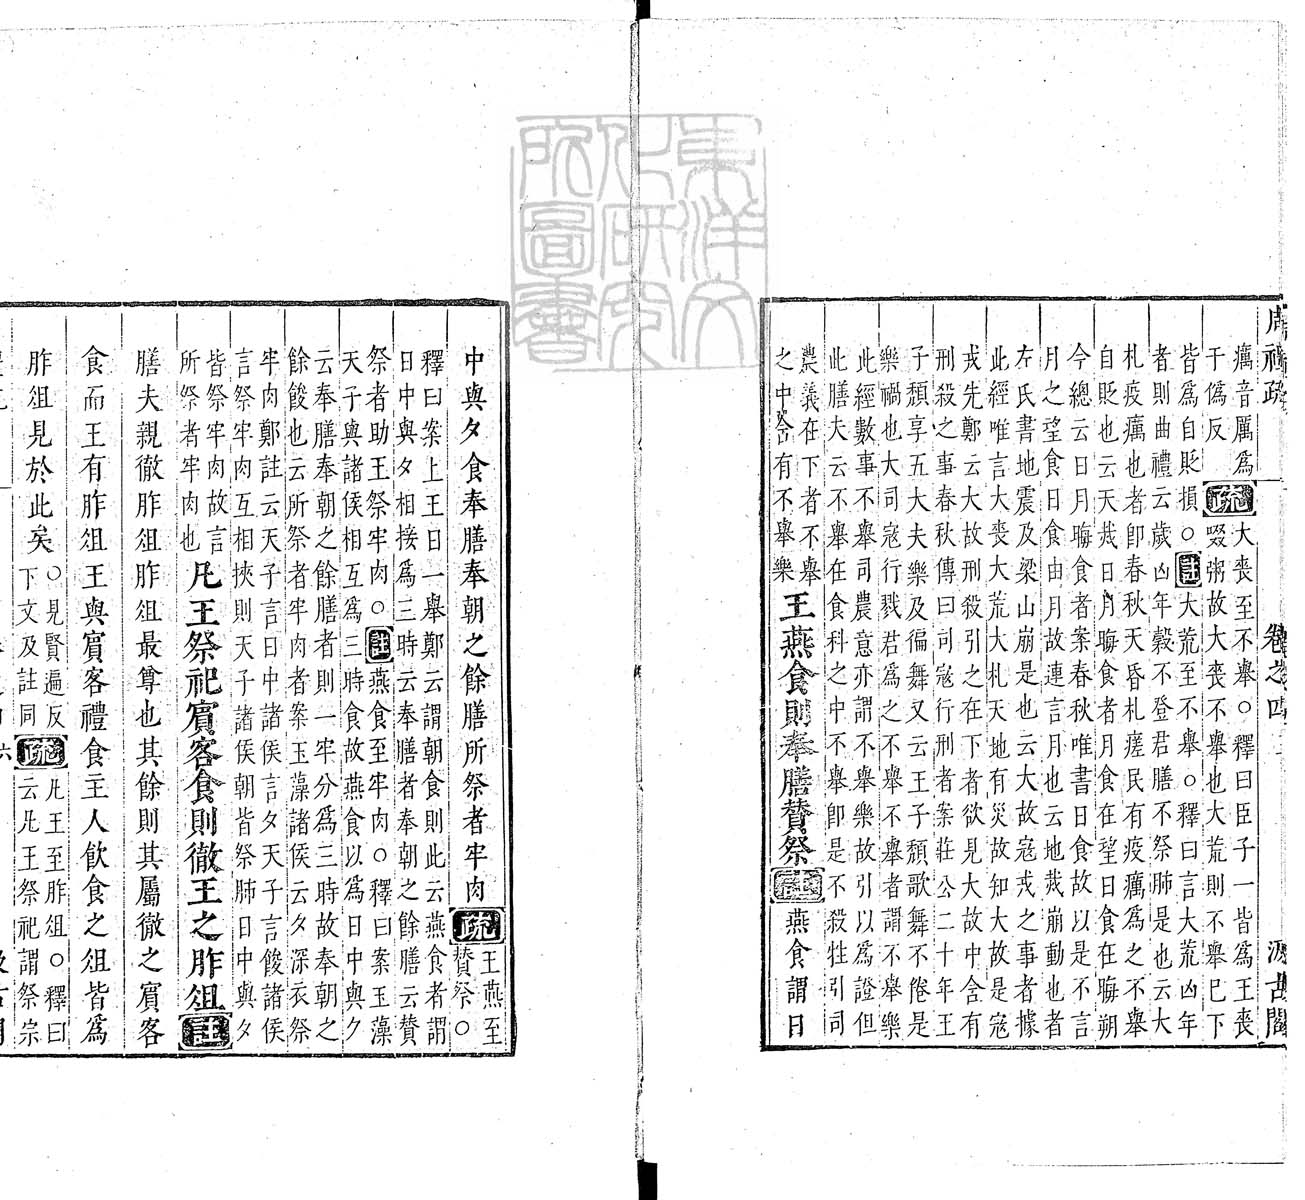 周禮疏 卷之四 三 汲古閣
癘音厲爲
于僞反
疏
大喪至不舉○釋曰臣子一皆爲王喪
啜粥故大喪不舉也大荒則不舉巳下
皆爲自貶損○註大荒至不舉○釋曰言大荒凶年
者則曲禮云歲凶年穀不登君膳不祭肺是也云大
札疫癘也者卽春秋天昏札瘥民有疫癘爲之不舉
自貶也云天烖日月晦食者月食在望日食在晦朔
今總云日月晦食者案春秋唯書日食故以是不言
月之望食日食由月故連言月也云地烖崩動也者
左氏書地震及梁山崩是也云大故寇戎之事者據
此經唯言大喪大荒大札天地有災故知大故是寇
戎先鄭云大故刑殺引之在下者欲見大故中含有
刑殺之事春秋傳曰司寇行刑者案莊公二十年王
子頽享五大夫樂及徧舞又云王子頽歌舞不倦是
樂禍也大司寇行戮君爲之不舉不舉者謂不舉樂
此經數事不舉司農意亦謂不舉樂故引以爲證但
此膳夫云不舉在食科之中不舉卽是不殺牲引司
農義在下者不舉
之中含有不舉樂
王燕食則奉膳贊祭註燕食謂日
中與夕食奉膳奉朝之餘膳所祭者牢肉疏王燕至
贊祭○
釋曰案上王日一舉鄭云謂朝食則此云燕食者謂
日中與夕相接爲三時云奉膳者奉朝之餘膳云贊
祭者助王祭牢肉○註燕食至牢肉○釋曰案玉藻
天子與諸侯相互爲三時食故燕食以爲日中與夕
云奉膳奉朝之餘膳者則一牢分爲三時故奉朝之
餘餕也云所祭者牢肉者案玉藻諸侯云夕深衣祭
牢肉鄭註云天子言日中諸侯言夕天子言餕諸侯
言祭牢肉互相挾則天子諸侯朝皆祭肺日中與夕
皆祭牢肉故言
所祭者牢肉也
凡王祭祀賓客食則徹王之胙俎註
膳夫親徹胙俎胙俎最尊也其餘則其屬徹之賓客
食而王有胙俎王與賓客禮食主人飮食之俎皆爲
胙俎見於此矣
○見賢遍反
下文及註同
疏
凡王至胙俎○釋曰
云凡王祭祀謂祭宗
六
東洋文化研究所圖書